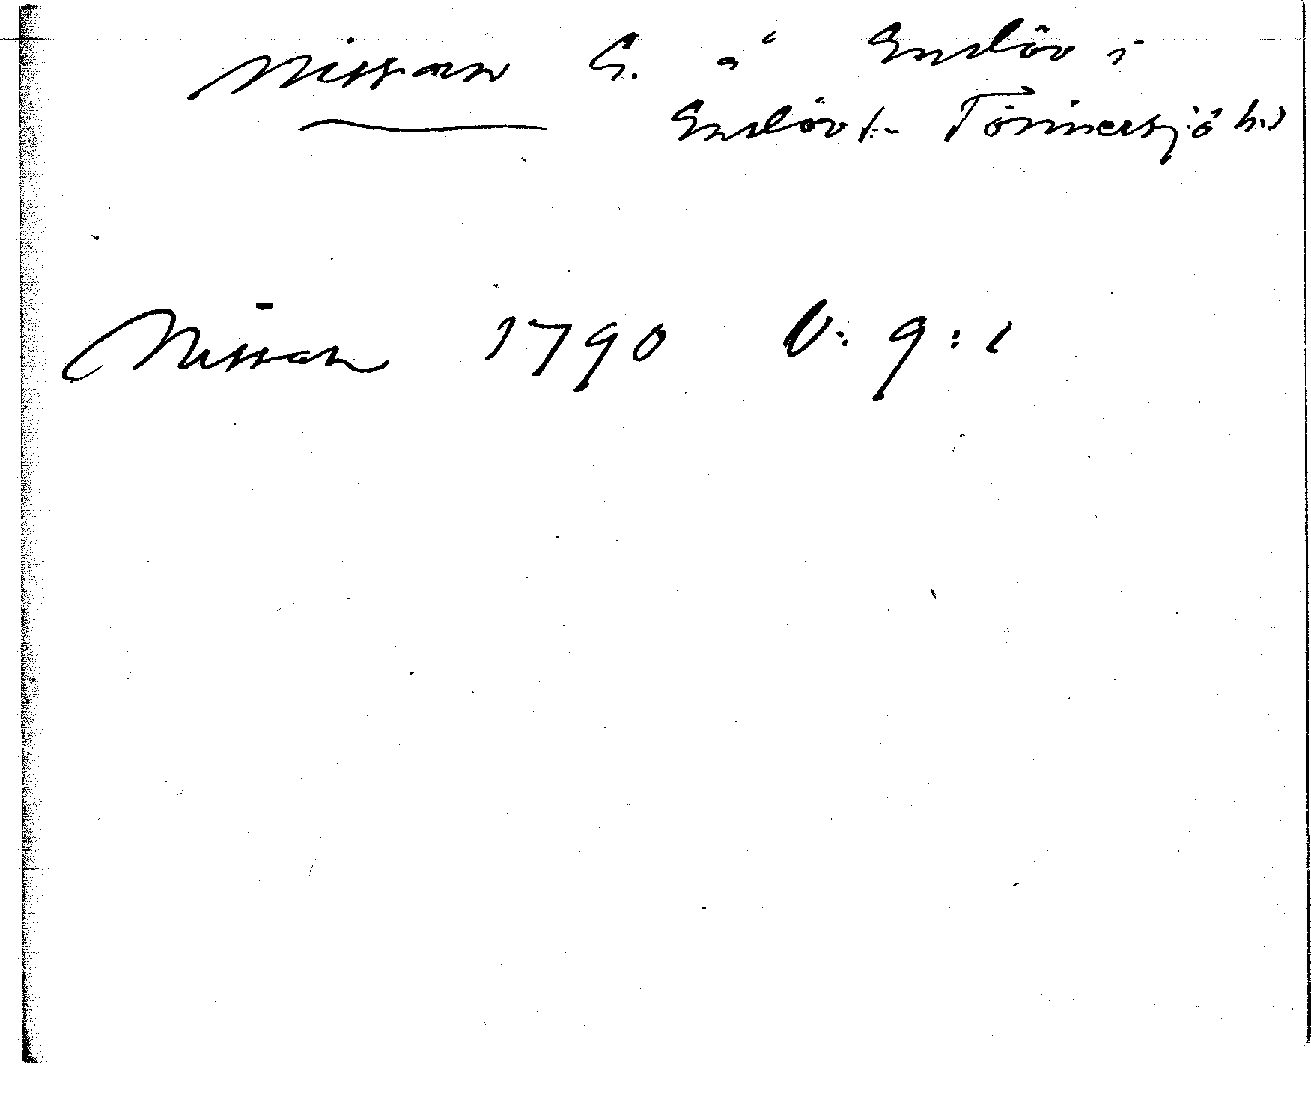 Nissan S. å Enslöv i
Enslövs Tönnersjö hd
Nissan 1790 V: 9: 1